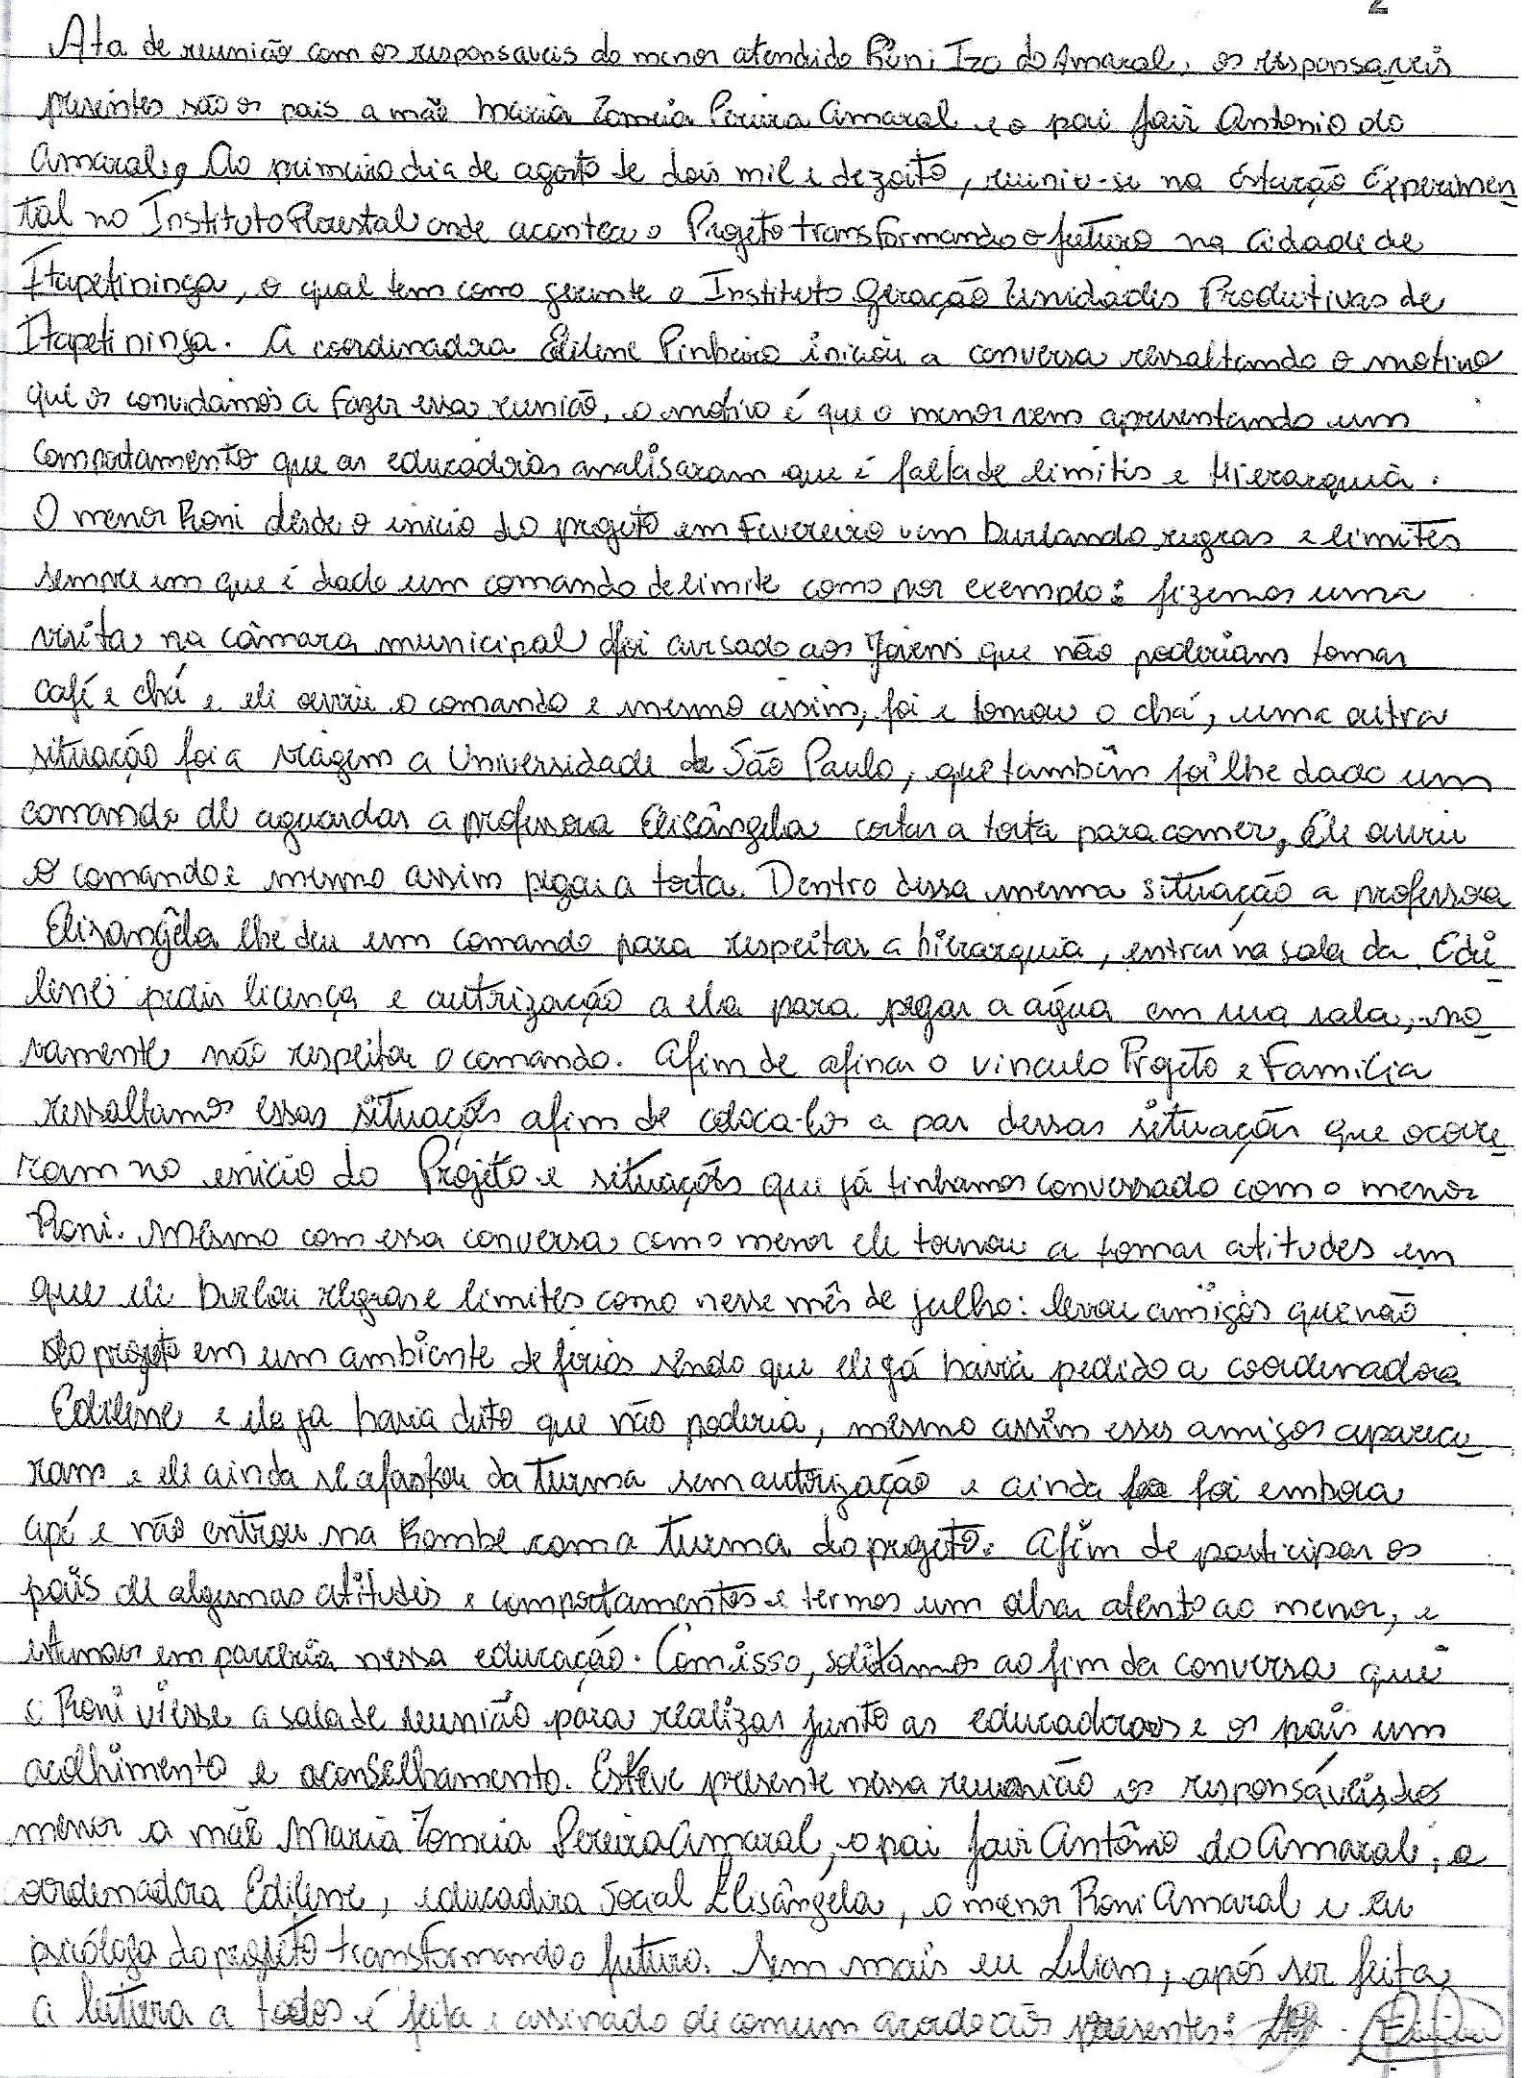 2
Ata de reunião com os responsaveis do menor atendido Roni Izo do Amaral, os responsaveis
presentes são os pais a mãe Maria Zomeia Pereira Amaral e o pai Jair Antonio do
Amaral, Ao primeiro dia de agosto de dois mil e dezoito, reuniu-se na Estação Experimen
tal no Instituto Florestal onde acontece o Projeto transformando o futuro na cidade de
Itapetininga, o qual tem como gerente o Instituto Geração Unidades Produtivas de
Itapetininga. A coordenadora Edilene Pinheiro iniciou a conversa ressaltando o motivo
que os convidamos a fazer essa reunião, o motivo é que o menor vem apresentando um
comportamento que as educadoras analisaram que é falta de limites e Hierarquia.
O menor Roni desde o inicio do projeto em Fevereiro vem burlando regras e limites
sempre em que é dado um comando de limite como por exemplo: fizemos uma
visita na câmara municipal foi avisado aos Jovens que não poderiam tomar
café e chá e ele ouviu o comando e mesmo assim, foi e tomou o chá, uma outra
situação foi a viagem a Universidade de São Paulo, que também foi lhe dado um
comando de aguardar a professora Elisângela cortar a torta para comer, Ele ouviu
o comando e mesmo assim pegou a torta. Dentro dessa mesma situação a professora
Elisangêla lhe deu um comando para respeitar a hierarquia, entrar na sala da Edi
lene pedir licença e autorização a ela para pegar a água em sua sala, no
vamente não respeitou o comando. Afim de afinar o vinculo Projeto e Familia
ressaltamos essas situações afim de coloca-los a par dessas situações que ocorre
ram no inicio do Projeto e situações que já tinhamos conversado com o menor
Roni. Mesmo com essa conversa com o menor ele tornou a tomar atitudes em
que ele burlou regras e limites como nesse mês de julho: levou amigos que não
do projeto em um ambiente de férias sendo que ele já havia pedido a coordenadora
Edilene e ela ja havia dito que não poderia, mesmo assim esses amigos aparece
ram e ele ainda se afastou da turma sem autorização e ainda foi embora
apé e não entrou na Kombe com a turma do projeto. Afim de participar os
pais de algumas atitudes e comportamentos e termos um olhar atento ao menor, e
estamos em parceria nessa educação. Com isso, solitamos ao fim da conversa que
o Roni viesse a sala de reunião para realizar junto as educadoras e os pais um
acolhimento e aconselhamento. Esteve presente nessa reunião os responsáveis do
menor a mãe Maria Zomeia Pereira Amaral, o pai Jair Antônio do Amaral, a
coordenadora Edilene, educadora Social Elisângela, o menor Roni Amaral e eu
psicóloga do projeto transformando o futuro. Sem mais eu Lilian, após ser feita
a leitura a todos é feita e assinado de comum acordo aos presentes: